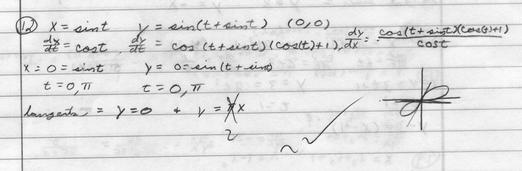 ⑫ x = sint y = sin(t+sint) (0,0)
dx/dt = cost, dy/dt = cos(t+sint)(cos(t)+1), dy/dx = cos(t+sint)(cos(t)+1)/cost
x = 0 = sint y = 0 = sin(t+sint)
t = 0, π t = 0, π
tangents = y = 0 + y = x
2